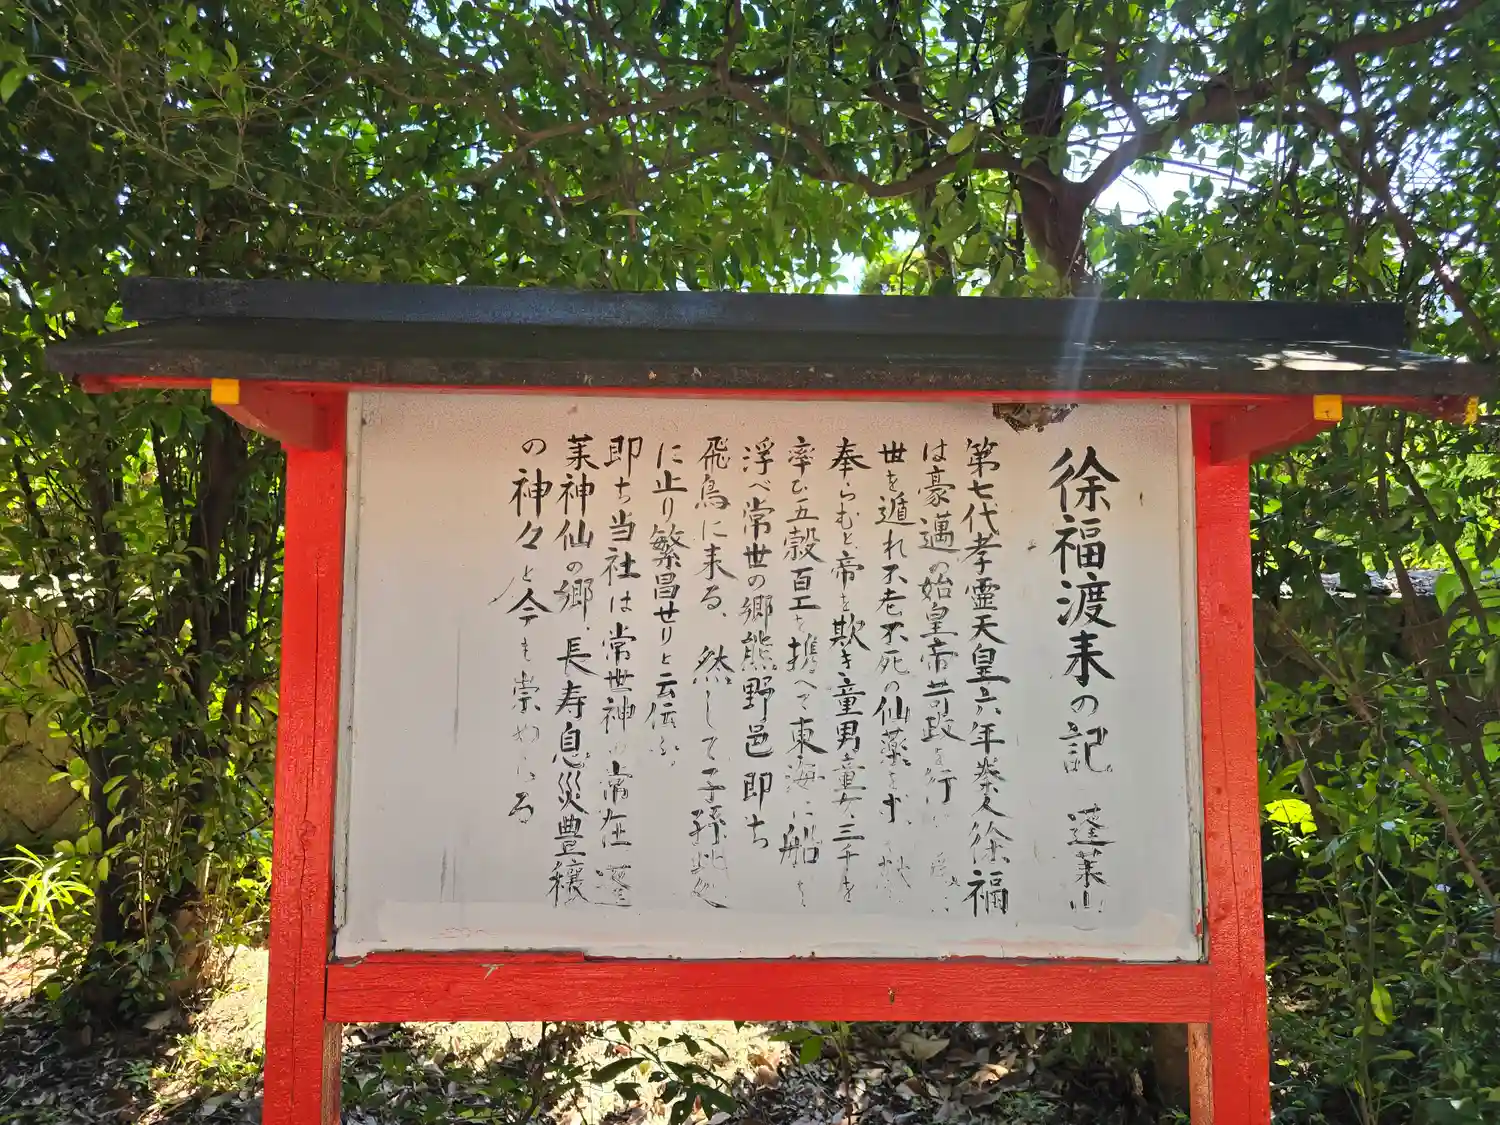 徐福渡来の記 蓬莱山
第七代孝霊天皇六年秦人徐福
は豪邁の始皇帝苛政を行
世を遁れ不老不死の仙薬を
奉らむと帝を欺き童男童女三千を
率ひ五穀百工を携へて東海に船を
浮べ常世の郷熊野邑即ち
飛鳥に来る、然して子孫此処
に止り繁昌せりと云伝ふ、
即ち当社は常世神の常在蓬
莱神仙の郷、長寿息災豊穣
の神々と今も崇める